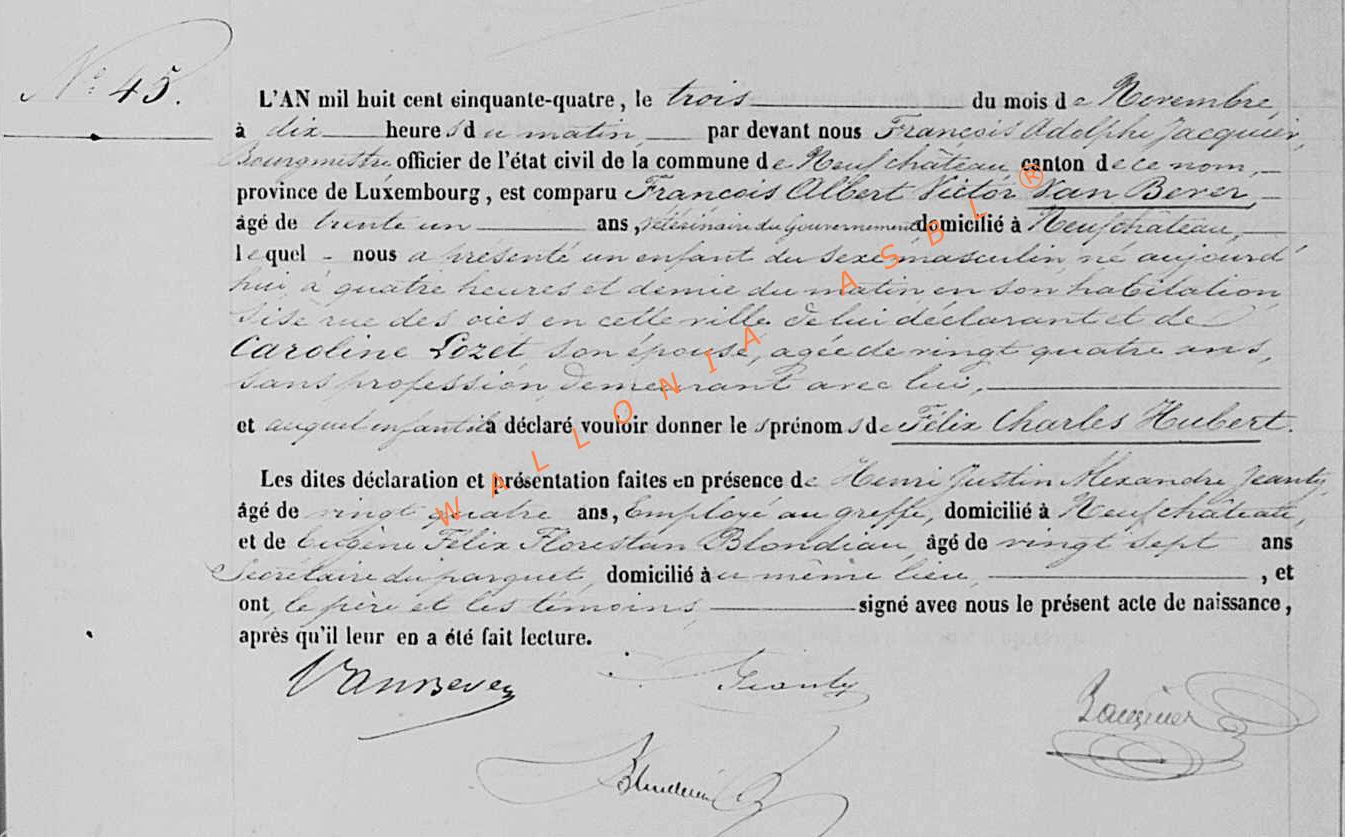 N° 45.
L'AN mil huit cent cinquante-quatre, le trois du mois de Novembre,
à dix heures du matin, par devant nous François Adolphe Jacquier,
Bourgmestre officier de l'état civil de la commune de Neufchâteau, canton de ce nom,
province de Luxembourg, est comparu François Albert Victor Van Bever,
âgé de trente un ans, vétérinaire du Gouvernement domicilié à Neufchâteau,
lequel nous a présenté un enfant du sexe masculin, né aujourd'
hui, à quatre heures et demie du matin, en son habitation
sise rue des oies en cette ville, de lui déclarant et de
Caroline Lozet son épouse, agée de vingt quatre ans,
sans profession, demeurant avec lui,
et auquel enfant il a déclaré vouloir donner les prénoms de Félix Charles Hubert.
Les dites déclaration et présentation faites en présence de Henri Justin Alexandre Jeanty,
âgé de vingt quatre ans, Employé au greffe, domicilié à Neufchâteau,
et de Eugène Félix Florestan Blondiau, âgé de vingt sept ans
Secrétaire du parquet, domicilié au même lieu, , et
ont, le père et les témoins, signé avec nous le présent acte de naissance,
après qu'il leur en a été fait lecture.
VanBever
Jeanty
Jacquier
Blondiau
WALLONIA ASBL ®